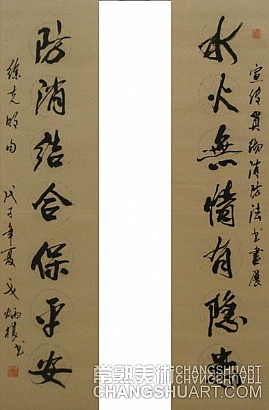 宣传贯彻消防法书画展
水火無情有隐患
防消结合保平安
徐克明句
戊子年夏
炳根书
常熟美術
CHANGSHUART.COM